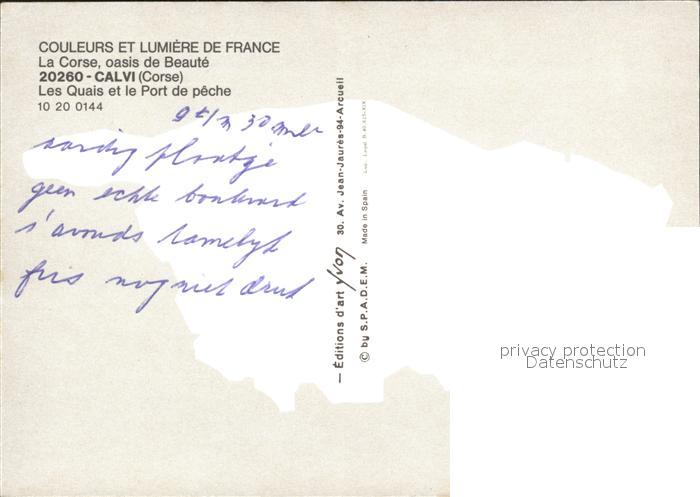 COULEURS ET LUMIÈRE DE FRANCE
La Corse, oasis de Beauté
20260 - CALVI (Corse)
Les Quais et le Port de pêche
10 20 0144
9 t/m 30 mei
aardig plaatsje
geen echte boulevard
s'avonds tamelijk
fris nog niet druk
— Éditions d'art Yvon 30. Av. Jean-Jaurès-94-Arcueil
© by S.P.A.D.E.M. Made in Spain
privacy protection
Datenschutz